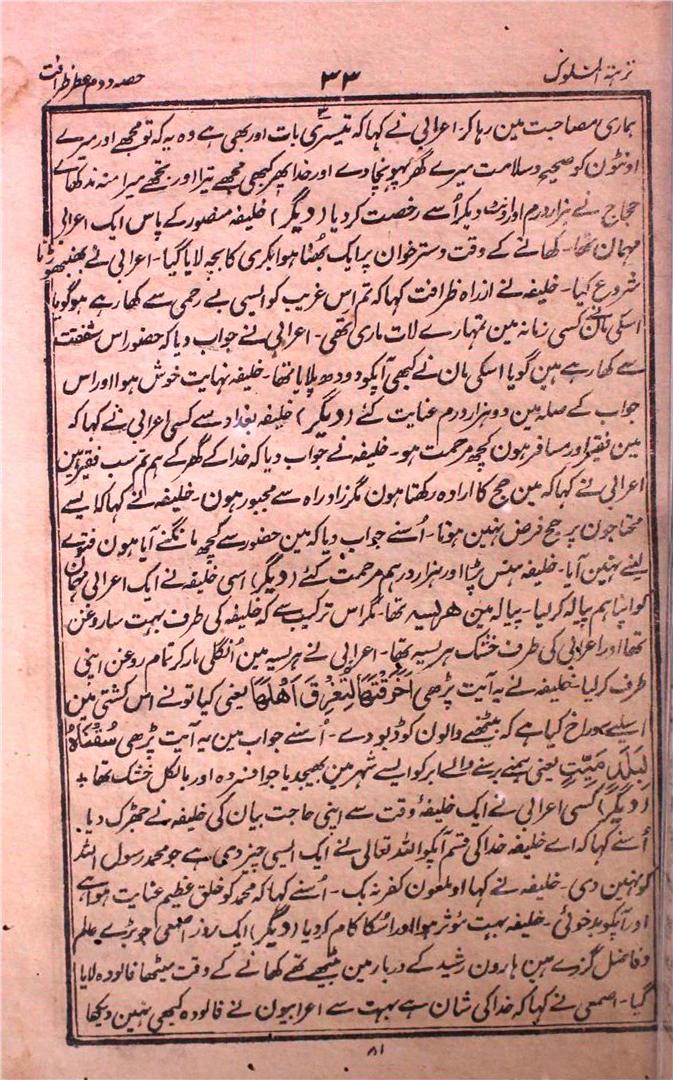 نزہتہ السلوک
۳۳
حصہ دوم عطر ظرافت
ہماری مصاحبت مین رہا کر۔ اعرابی نے کہا کہ تیسری بات اور بھی ہے وہ یہ کہ تو مجھے اور میرے
اونٹون کو صحیح و سلامت میرے گھر پہونچا دے اور خدا پھر کبھی مجھے تیرا اور تجھے میرا منہ نہ دکھاے
حجاج نے ہزار درم اور اونٹ دیکر اُسے رخصت کر دیا (دیگر) خلیفہ منصور کے پاس ایک اعرابی
مہمان تھا۔ کھانے کے وقت دسترخوان پر ایک بھُنا ہوا بکری کا بچہ لایا گیا۔ اعرابی نے بھنبھوڑنا
شروع کیا۔ خلیفہ نے ازراہ ظرافت کہا کہ تم اس غریب کو ایسی بے رحمی سے کھا رہے ہو گویا
اسکی مان نے کسی زمانہ مین تمہارے لات ماری تھی۔ اعرابی نے جواب دیا کہ حضور اس شفقت
سے کھا رہے ہین گویا اسکی مان نے کبھی آپکو دودھ پلایا تھا۔ خلیفہ نہایت خوش ہوا اور اس
جواب کے صلہ مین دو ہزار درم عنایت کئے (دیگر) خلیفہ بغداد سے کسی اعرابی نے کہا کہ
مین فقیر اور مسافر ہون کچھ مرحمت ہو۔ خلیفہ نے جواب دیا کہ خدا کے گھر کے ہم تم سب فقیر ہین
اعرابی نے کہا کہ مین حج کا ارادہ رکھتا ہون مگر زاد راہ سے مجبور ہون۔ خلیفہ نے کہا کہ ایسے
محتاجون پر حج فرض نہین ہوتا۔ اُسنے جواب دیا کہ مین حضور سے کچھ مانگنے آیا ہون فتوے
لینے نہین آیا۔ خلیفہ ہنس پڑا اور ہزار درہم مرحمت کئے (دیگر) اسی خلیفہ نے ایک اعرابی مہمان
کو اپنا ہم پیالہ کر لیا۔ پیالہ مین ہریسہ تھا مگر اس ترکیب سے کہ خلیفہ کی طرف بہت سا روغن
تھا اور اعرابی کی طرف خشک ہریسہ تھا۔ اعرابی نے ہریسہ مین اُنگلی مار کر تمام روغن اپنی
طرف کر لیا۔ خلیفہ نے یہ آیت پڑھی اَخَرَقْتَهَا لِتُغْرِقَ اَهْلَهَا یعنی کیا تونے اس کشتی مین
اسلیے سوراخ کیا ہے کہ بیٹھنے والون کو ڈبو دے۔ اُسنے جواب مین یہ آیت پڑھی سُقْنَاهُ
لِبَلَدٍ مَّيِّتٍ یعنی ہمنے برسنے والے ابر کو ایسے شہر مین بھیجدیا جو افسردہ اور بالکل خشک تھا +
(دیگر) کسی اعرابی نے ایک خلیفۂ وقت سے اپنی حاجت بیان کی خلیفہ نے جھڑک دیا۔
اُسنے کہا کہ اے خلیفہ خدا کی قسم آپکو اللہ تعالی نے ایک ایسی چیز دی ہے جو محمد رسول اللہ
کو نہین دی۔ خلیفہ نے کہا او ملعون کفر نہ بک۔ اُسنے کہا کہ محمد کو خلق عظیم عنایت ہوا ہے
اور آپکو بدخوئی۔ خلیفہ بہت موثر ہوا اور اسکا کام کر دیا (دیگر) ایک روز اصمعی جو بڑے عالم
و فاضل گزرے ہین ہارون رشید کے دربار مین بیٹھے تھے کھانے کے وقت میٹھا فالودہ لایا
گیا۔ اصمعی نے کہا کہ خدا کی شان ہے بہت سے اعرابیون نے فالودہ کبھی نہین دیکھا
۸۱